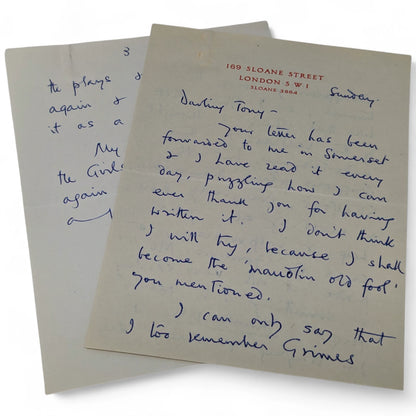 3
the plays &
again &
it as a
My
the Girls
again
169 SLOANE STREET
LONDON S W 1
SLOANE 3864
Sunday.
Darling Tony –
Your letter has been
forwarded to me in Somerset
& I have read it every
day, puzzling how I can
ever thank you for having
written it. I don't think
I will try, because I shall
become the 'maudlin old fool'
you mentioned.
I can only say that
I too remember Grimes